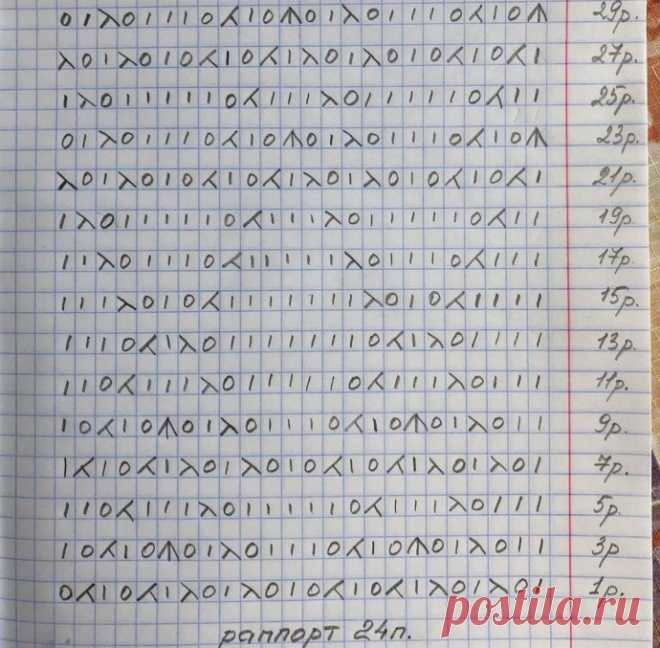 0 1 λ 0 1 1 1 0 ⋌ 1 0 ⋔ 0 1 λ 0 1 1 1 0 ⋌ 1 0 ⋔ 29р.
λ 0 1 λ 0 1 0 ⋌ 1 0 ⋌ 1 λ 0 1 λ 0 1 0 ⋌ 1 0 ⋌ 1 27р.
1 λ 0 1 1 1 1 1 0 ⋌ 1 1 1 λ 0 1 1 1 1 1 0 ⋌ 1 1 25р.
0 1 λ 0 1 1 1 0 ⋌ 1 0 ⋔ 0 1 λ 0 1 1 1 0 ⋌ 1 0 ⋔ 23р.
λ 0 1 λ 0 1 0 ⋌ 1 0 ⋌ 1 λ 0 1 λ 0 1 0 ⋌ 1 0 ⋌ 1 21р.
1 λ 0 1 1 1 1 1 0 ⋌ 1 1 1 λ 0 1 1 1 1 1 0 ⋌ 1 1 19р.
1 1 λ 0 1 1 1 0 ⋌ 1 1 1 1 1 λ 0 1 1 1 0 ⋌ 1 1 1 17р.
1 1 1 λ 0 1 0 ⋌ 1 1 1 1 1 1 1 λ 0 1 0 ⋌ 1 1 1 1 15р.
1 1 1 0 ⋌ 1 λ 0 1 1 1 1 1 1 1 0 ⋌ 1 λ 0 1 1 1 1 13р.
1 1 0 ⋌ 1 1 1 λ 0 1 1 1 1 1 0 ⋌ 1 1 1 λ 0 1 1 1 11р.
1 0 ⋌ 1 0 ⋔ 0 1 λ 0 1 1 1 0 ⋌ 1 0 ⋔ 0 1 λ 0 1 1 9р.
1 ⋌ 1 0 ⋌ 1 λ 0 1 λ 0 1 0 ⋌ 1 0 ⋌ 1 λ 0 1 λ 0 1 7р.
1 1 0 ⋌ 1 1 1 λ 0 1 1 1 1 1 0 ⋌ 1 1 1 λ 0 1 1 1 5р.
1 0 ⋌ 1 0 ⋔ 0 1 λ 0 1 1 1 0 ⋌ 1 0 ⋔ 0 1 λ 0 1 1 3р
0 ⋌ 1 0 ⋌ 1 λ 0 1 λ 0 1 0 ⋌ 1 0 ⋌ 1 λ 0 1 λ 0 1 1р.
раппорт 24п.
postila.ru